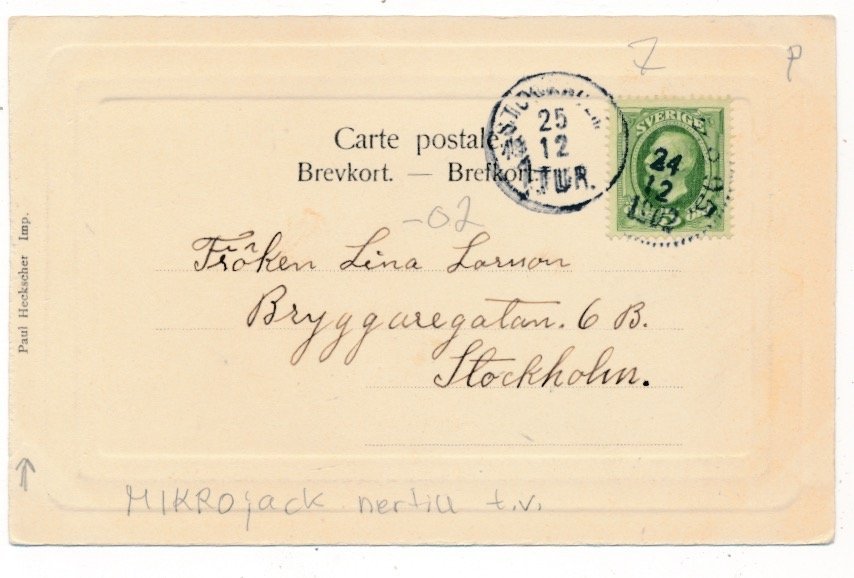 7
P
Carte postale
Brevkort. — Brefkort.
25
12
TUR.
SVERIGE
24
12
1902
-02
Fröken Lina Larsson
Bryggaregatan. 6 B.
Stockholm.
Paul Heckscher Imp.
MIKROjack nertill t.v.